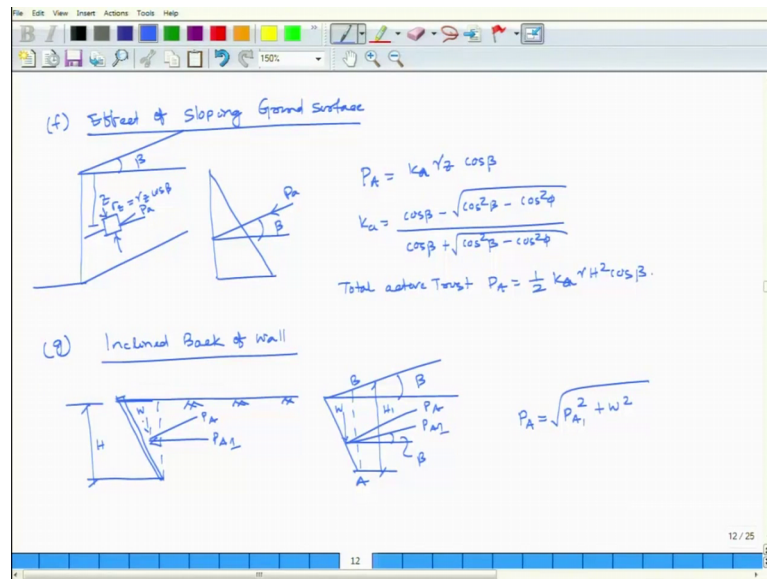 File Edit View Insert Actions Tools Help
B I
150%
(f) Effect of Sloping Ground Surface
β
z σz = γz cosβ
Pa
Pa
β
PA = ka γz cosβ
ka = cosβ - √cos²β - cos²φ
cosβ + √cos²β - cos²φ
Total active Trust PA = 1/2 ka γH² cosβ.
(g) Inclined Back of Wall
H
W
PA
PA1
B
β
W
H1
PA
PA1
β
A
PA = √PA1² + W²
12 / 25
12